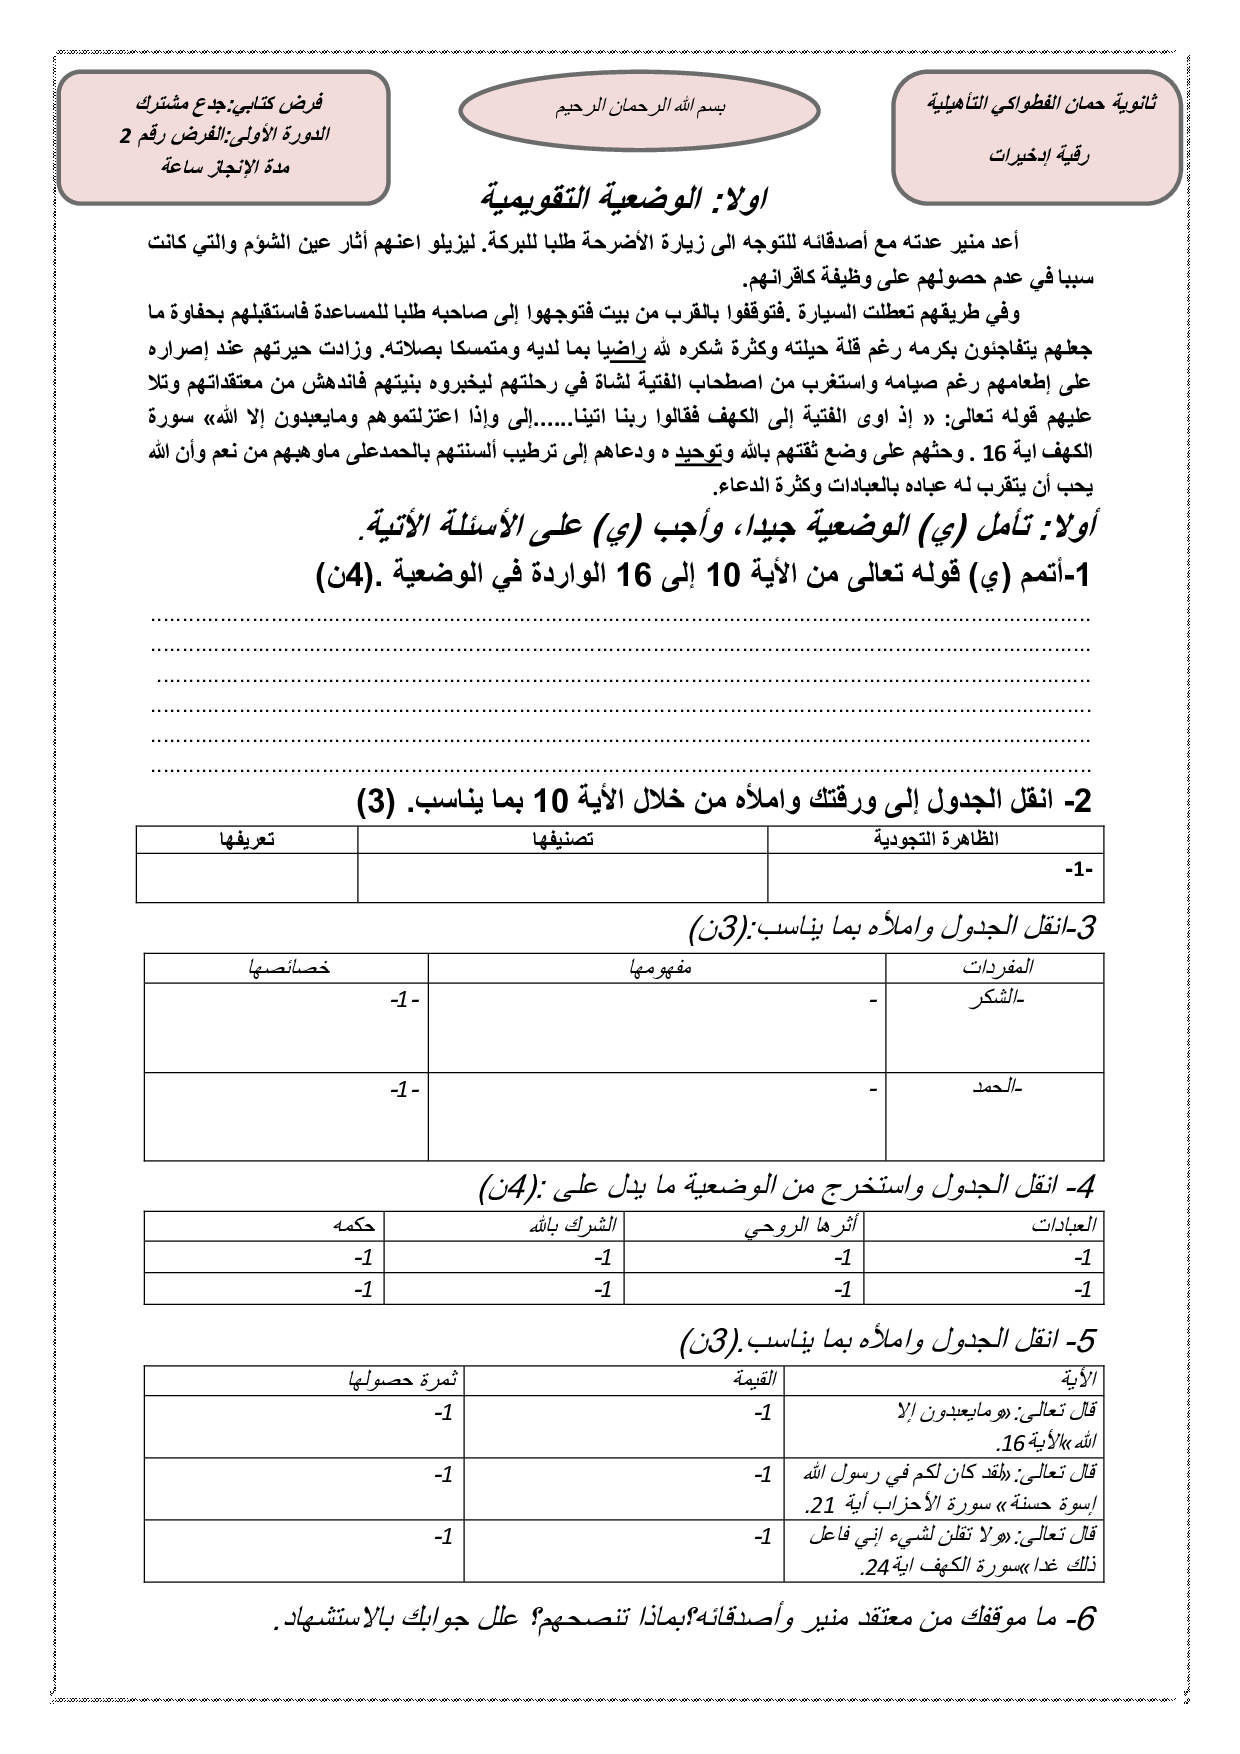 ثانوية حمان الفطواكي التأهيلية
رقية إدخيرات
بسم الله الرحمان الرحيم
فرض كتابي:جدع مشترك
الدورة الأولى:الفرض رقم 2
مدة الإنجاز ساعة
اولا: الوضعية التقويمية
أعد منير عدته مع أصدقائه للتوجه الى زيارة الأضرحة طلبا للبركة. ليزيلو اعنهم أثار عين الشؤم والتي كانت
سببا في عدم حصولهم على وظيفة كاقرانهم.
وفي طريقهم تعطلت السيارة .فتوقفوا بالقرب من بيت فتوجهوا إلى صاحبه طلبا للمساعدة فاستقبلهم بحفاوة ما
جعلهم يتفاجئون بكرمه رغم قلة حيلته وكثرة شكره لله راضيا بما لديه ومتمسكا بصلاته. وزادت حيرتهم عند إصراره
على إطعامهم رغم صيامه واستغرب من اصطحاب الفتية لشاة في رحلتهم ليخبروه بنيتهم فاندهش من معتقداتهم وتلا
عليهم قوله تعالى: « إذ اوى الفتية إلى الكهف فقالوا ربنا اتينا......إلى وإذا اعتزلتموهم ومايعبدون إلا الله» سورة
الكهف اية 16 . وحثهم على وضع ثقتهم بالله وتوحيد ه ودعاهم إلى ترطيب ألسنتهم بالحمدعلى ماوهبهم من نعم وأن الله
يحب أن يتقرب له عباده بالعبادات وكثرة الدعاء.
أولا: تأمل (ي) الوضعية جيدا، وأجب (ي) على الأسئلة الأتية.
1-أتمم (ي) قوله تعالى من الأية 10 إلى 16 الواردة في الوضعية .(4ن)
2- انقل الجدول إلى ورقتك واملأه من خلال الأية 10 بما يناسب. (3)
الظاهرة التجودية تصنيفها تعريفها
-1-
3-انقل الجدول واملأه بما يناسب:(3ن)
المفردات مفهومها خصائصها
-الشكر - -1-
-الحمد - -1-
4- انقل الجدول واستخرج من الوضعية ما يدل على :(4ن)
العبادات أثرها الروحي الشرك بالله حكمه
1- 1- 1- 1-
1- 1- 1- 1-
5- انقل الجدول واملأه بما يناسب.(3ن)
الأية القيمة ثمرة حصولها
قال تعالى:«ومايعبدون إلا 1- 1-
الله»الأية16.
قال تعالى:«لقد كان لكم في رسول الله 1- 1-
إسوة حسنة» سورة الأحزاب أية 21.
قال تعالى:«ولا تقلن لشيء إني فاعل 1- 1-
ذلك غدا»سورة الكهف اية24.
6- ما موقفك من معتقد منير وأصدقائه؟بماذا تنصحهم؟ علل جوابك بالاستشهاد.